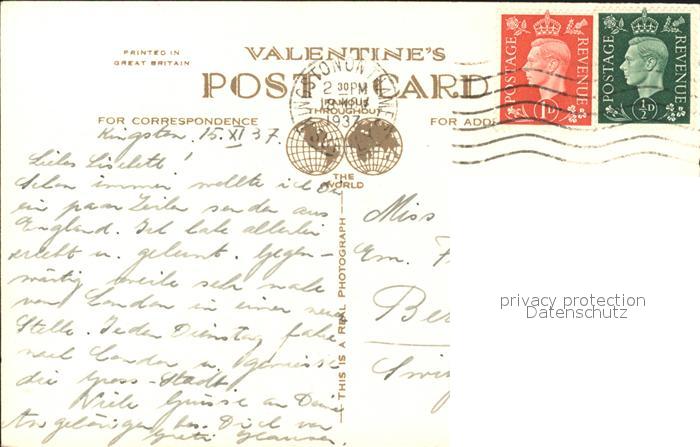 PRINTED IN
GREAT BRITAIN
VALENTINE'S
POST CARD
FOR CORRESPONDENCE
FAMOUS
THROUGHOUT
THE
WORLD
FOR ADD
THIS IS A REAL PHOTOGRAPH
KINGSTON ON THAMES
2 30 PM
1937
POSTAGE REVENUE
1D
POSTAGE REVENUE
½D
Kingston, 15. XI. 37.
Liebes Liselett!
Schon immer wollte ich Dir
ein paar Zeilen senden aus
England. Ich habe allerlei
erlebt u. gelernt. Gegen-
wärtig weile sehr nahe
von London in einer neuen
Stelle. Jeden Dienstag fahre
nach London u. geniesse
die Gross-Stadt.
Viele Grüsse an Deine
Angehörigen bes. Dich von
Greti
Miss
Em.
Be
Swi
privacy protection
Datenschutz